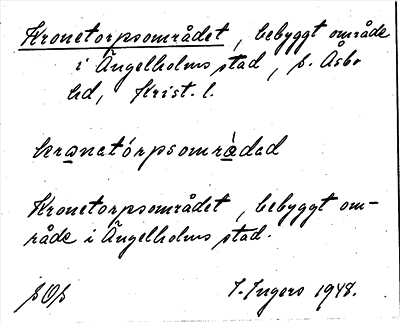 Kronetorpsområdet, bebyggt område
i Ängelholms stad, s. Åsbo
hd, Krist. l.
kronatórpsområ̀dad
Kronetorpsområdet, bebyggt om-
råde i Ängelholms stad.
I. Ingers 1948.